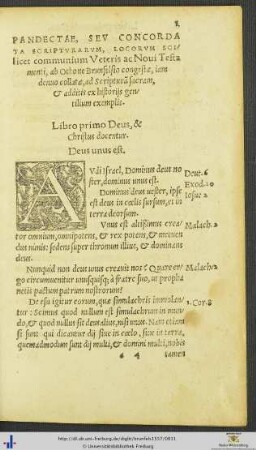 PANDECTAE, SEV CONCORDA
TA SCRIPTVRARVM, LOCORVM SCI
licet communium Veteris ac Noui Testa
menti, ab Othone Brunfelsio congestæ, iam
denuo collatæ, ad Scripturã sacram,
& additis ex historijs gen
tilium exemplis.
Libro primo Deus, &
Christus docentur.
Deus unus est.
AVdi Israel, Dominus deus no Deut. 6
ster, dominus unus est. Exod.
Dominus deus uester, ipse Iosue
est deus in cœlis sursum, et in
terra deorsum.
Vnus est altissimus crea Malach.
tor omnium, omnipotens, & rex potens, & metuen
dus nimis: sedens super thronum illius, & dominans
deus.
Nunquid non deus unus creauit nos? Quare er Malach.
go circumuenitur unusquisq; à fratre suo, ut propha
netis pactum patrum nostrorum?
De esu igitur eorum, quæ simulachris immolan 1. Cor. 8
tur: Scimus quod nullum est simulachrum in mun
do, & quod nullus sit deus alius, nisi unus. Nam etiam
si sunt qui dicantur dij siue in cœlo, siue in terra,
quemadmodum sunt dij multi, & domini multi, nobis
tamen
http://dl.ub.uni-freiburg.de/diglit/brunfels1557/0031
© Universitätsbibliothek Freiburg